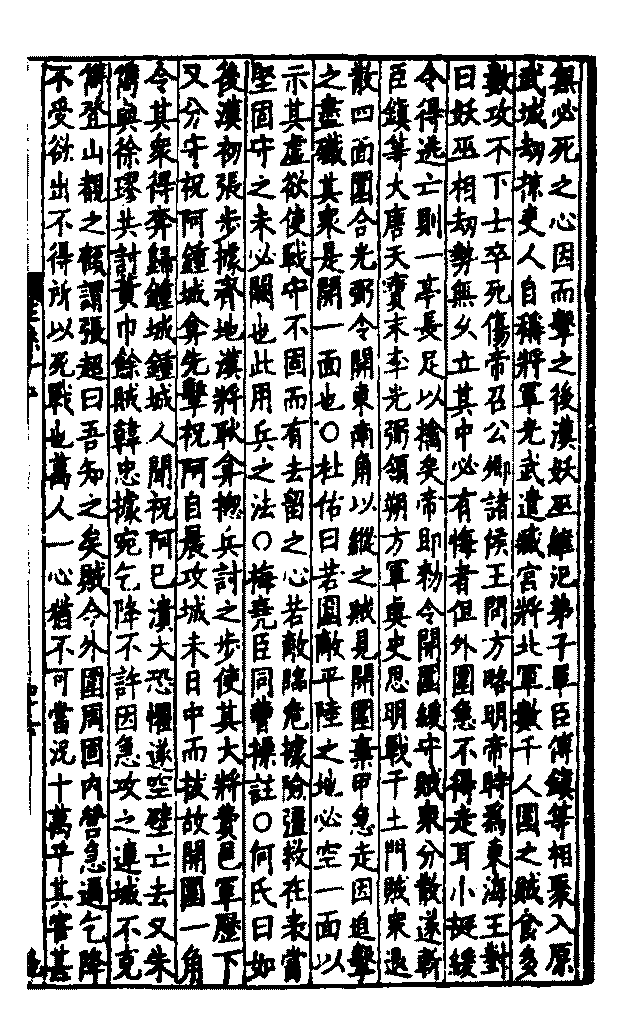 無必死之心因而擊之後漢妖巫維汜弟子單臣傅鎮等相聚入原
武城劫掠吏人自稱將軍光武遣臧宮將北軍數千人圍之賊食多
數攻不下士卒死傷帝召公卿諸侯王問方略明帝時爲東海王對
曰妖巫相劫勢無久立其中必有悔者但外圍急不得走耳小挺緩
令得逃亡則一亭長足以擒矣帝即勑令開圍緩守賊衆分散遂斬
臣鎮等大唐天寶末李光弼領朔方軍與史思明戰于土門賊衆退
散四面圍合光弼令開東南角以縱之賊見開圍棄甲急走因追擊
之盡殲其衆是開一面也○杜佑曰若圍敵平陸之地必空一面以
示其虛欲使戰守不固而有去留之心若敵臨危據險彊救在表當
堅固守之未必闕也此用兵之法○梅堯臣同曹操註○何氏曰如
後漢初張步據齊地漢將耿弇揔兵討之步使其大將費邑軍歷下
又分守祝阿鍾城弇先擊祝阿自晨攻城未日中而拔故開圍一角
令其衆得奔歸鍾城鍾城人聞祝阿已潰大恐懼遂空壁亡去又朱
儁與徐璆共討黃巾餘賊韓忠據宛乞降不許因急攻之連城不克
儁登山觀之顧謂張超曰吾知之矣賊今外圍周固內營急逼乞降
不受欲出不得所以死戰也萬人一心猶不可當況十萬乎其害甚